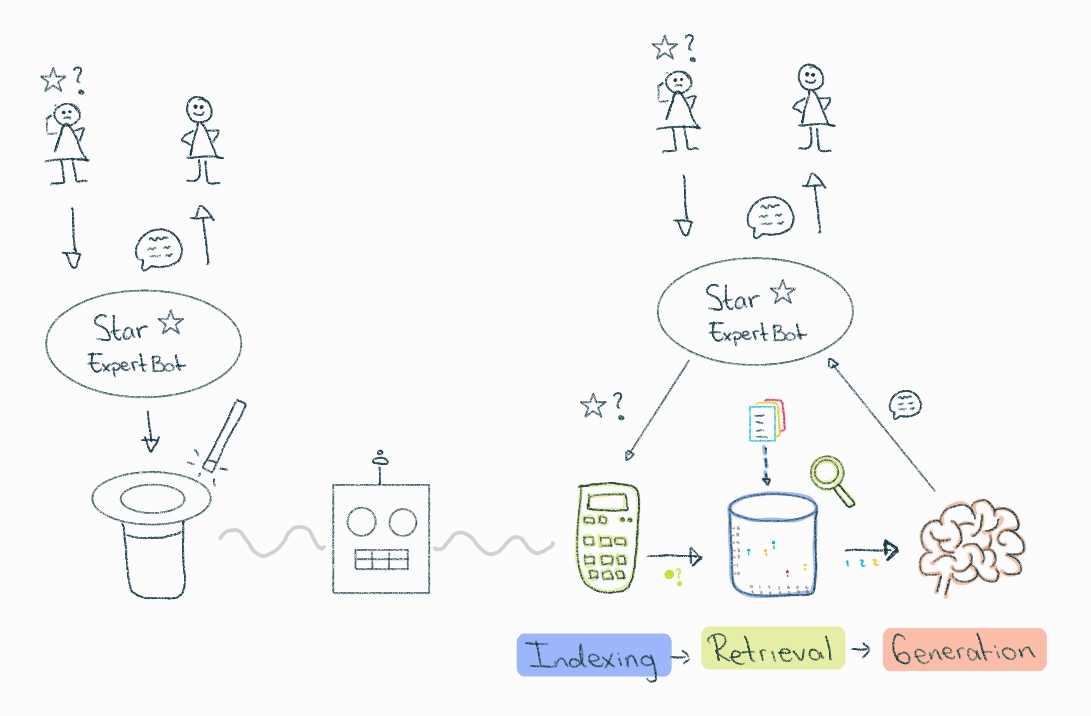 ?
Star
ExpertBot
?
Star
ExpertBot
?
?
1 2 2
Indexing
Retrieval
Generation